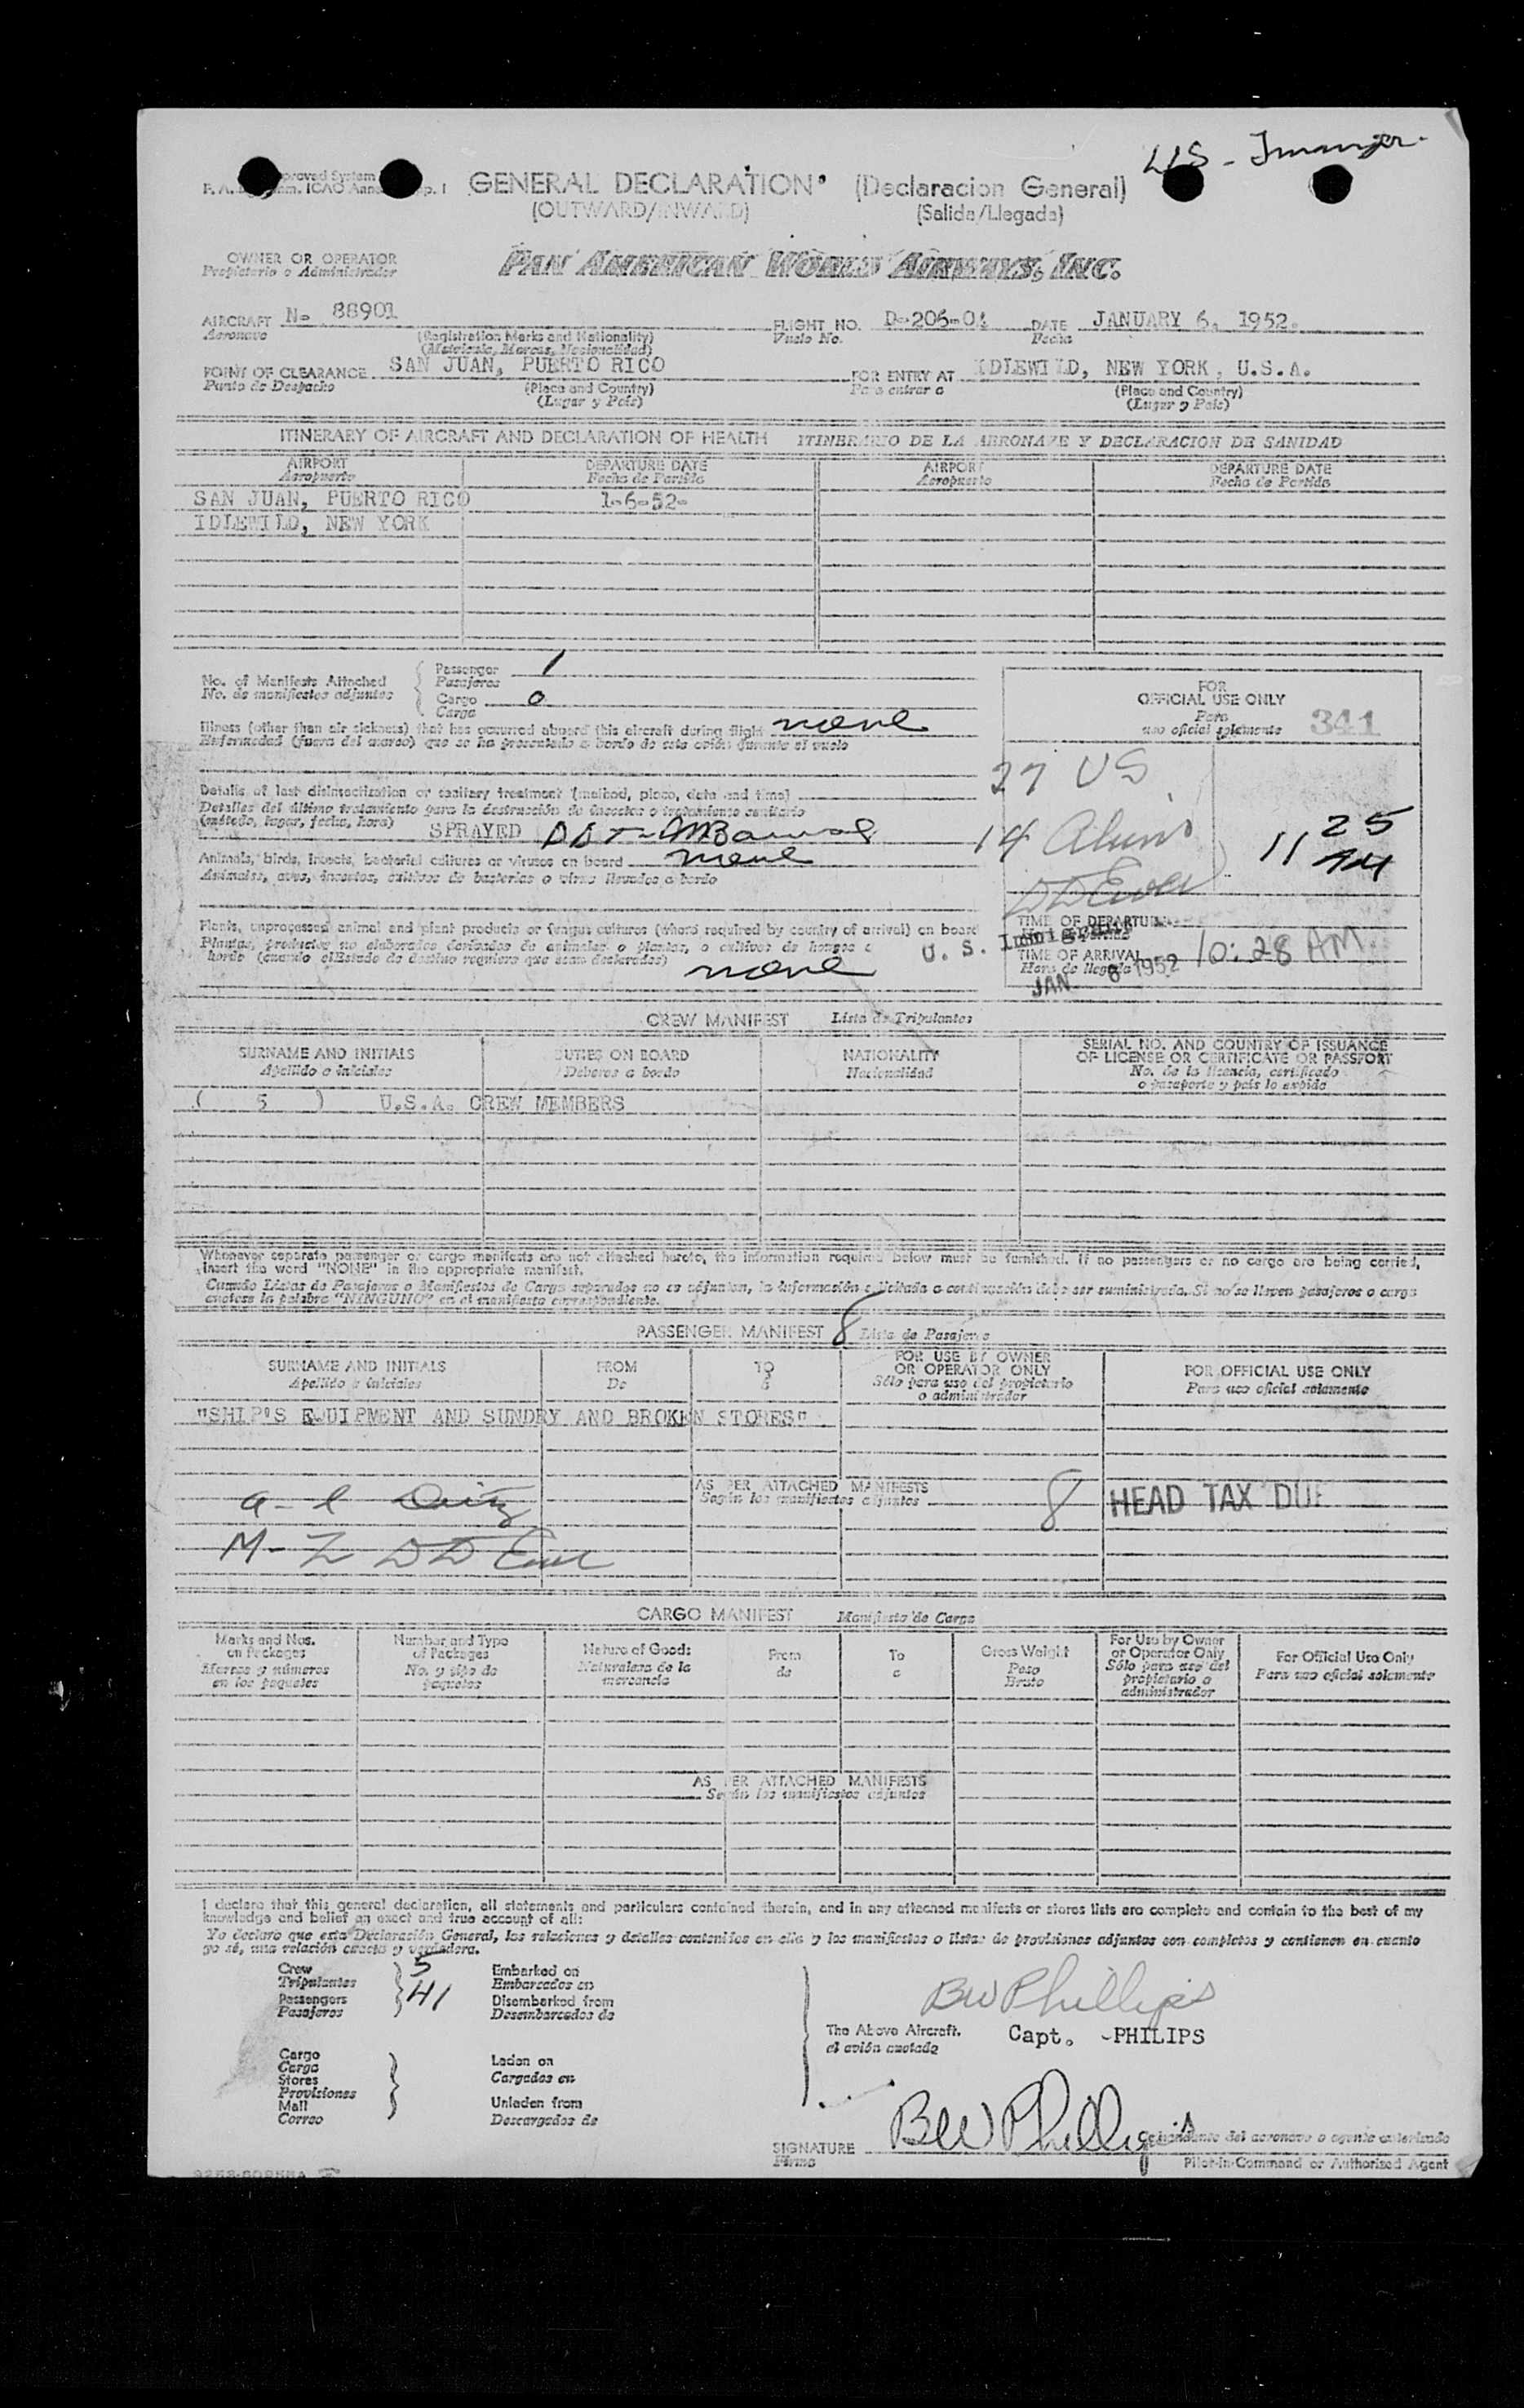 GENERAL DECLARATION (Declaracion General)
(OUTWARD/INWARD) (Salida/Llegada)
OWNER OR OPERATOR
Propietario o Administrador
PAN AMERICAN WORLD AIRWAYS, INC.
AIRCRAFT N- 88901 FLIGHT NO. DATE JANUARY 6, 1952.
Aeronave (Registration Marks and Nationality) Vuelo No. Fecha
(Matricula, Marcas, Nacionalidad)
POINT OF CLEARANCE SAN JUAN, PUERTO RICO FOR ENTRY AT IDLEWILD, NEW YORK, U.S.A.
Punto de Despacho (Place and Country) Para entrar a (Place and Country)
(Lugar y País) (Lugar y País)
ITINERARY OF AIRCRAFT AND DECLARATION OF HEALTH ITINERARIO DE LA AERONAVE Y DECLARACION DE SANIDAD
AIRPORT DEPARTURE DATE AIRPORT DEPARTURE DATE
Aeropuerto Fecha de Partida Aeropuerto Fecha de Partida
SAN JUAN, PUERTO RICO 1-6-52-
IDLEWILD, NEW YORK
No. of Manifests Attached
No. de manifiestos adjuntos
Passenger 1
Pasajeros
Cargo 0
Carga
FOR
OFFICIAL USE ONLY
Para
uso oficial solamente 341
Illness (other than air sickness) that has occurred aboard this aircraft during flight none
Enfermedad (fuera del mareo) que se ha presentado a bordo de este avión durante el vuelo
27 US
Details of last disinsectization or sanitary treatment (method, place, date and time)
Detalles del último tratamiento para la destrucción de insectos o tratamiento sanitario
(método, lugar, fecha, hora) SPRAYED DDT
14 Aliens
11 25
AM
Animals, birds, insects, bacterial cultures or viruses on board none
Animales, aves, insectos, cultivos de bacterias o virus llevados a bordo
Plants, unprocessed animal and plant products or fungus cultures (where required by country of arrival) on board
Plantas, productos no elaborados derivados de animales o plantas, o cultivos de hongos a
bordo (cuando el Estado de destino requiere que sean declarados) none
TIME OF DEPARTURE
U. S. Immigration
TIME OF ARRIVAL 10:28 AM
Hora de llegada
JAN 6 1952
CREW MANIFEST Lista de Tripulantes
SURNAME AND INITIALS DUTIES ON BOARD NATIONALITY SERIAL NO. AND COUNTRY OF ISSUANCE
OF LICENSE OR CERTIFICATE OR PASSPORT
Apellido e iniciales Deberes a bordo Nacionalidad No. de la licencia, certificado
o pasaporte y país lo expide
( 5 ) U.S.A. CREW MEMBERS
Whenever separate passenger or cargo manifests are not attached hereto, the information required below must be furnished. If no passengers or no cargo are being carried,
insert the word "NONE" in the appropriate manifest.
Cuando Listas de Pasajeros o Manifiestos de Carga separados no se adjuntan, la información solicitada a continuación debe ser suministrada. Si no se llevan pasajeros o carga
anótese la palabra "NINGUNO" en el manifiesto correspondiente.
PASSENGER MANIFEST 8 Lista de Pasajeros
SURNAME AND INITIALS FROM TO FOR USE BY OWNER
OR OPERATOR ONLY FOR OFFICIAL USE ONLY
Apellido e iniciales De a Sólo para uso del propietario
o administrador Para uso oficial solamente
"SHIP'S EQUIPMENT AND SUNDRY AND BROKEN STORES"
AS PER ATTACHED MANIFESTS 8 HEAD TAX DUE
Según los manifiestos adjuntos
CARGO MANIFEST Manifiesto de Carga
Marks and Nos.
on Packages
Marcas y números
en los paquetes
Number and Type
of Packages
No. y tipo de
paquetes
Nature of Goods
Naturaleza de la
mercancía
From
de
To
a
Gross Weight
Peso
Bruto
For Use by Owner
or Operator Only
Sólo para uso del
propietario o
administrador
For Official Use Only
Para uso oficial solamente
AS PER ATTACHED MANIFESTS
Según los manifiestos adjuntos
I declare that this general declaration, all statements and particulars contained therein, and in any attached manifests or stores lists are complete and contain to the best of my
knowledge and belief an exact and true account of all:
Yo declaro que esta Declaración General, las relaciones y detalles contenidos en ella y los manifiestos o listas de provisiones adjuntos son completos y contienen en cuanto
yo sé, una relación exacta y verdadera.
Crew 5 Embarked on
Tripulantes Embarcados en
Passengers 41 Disembarked from
Pasajeros Desembarcados de
BW Phillips
The Above Aircraft. Capt. -PHILIPS
el avión anotado
Cargo
Carga Laden on
Stores Cargados en
Provisiones
Mail Unladen from
Correo Descargados de
SIGNATURE BW Phillips Comandante del aeronave o agente autorizado
Firma Pilot-in-Command or Authorized Agent